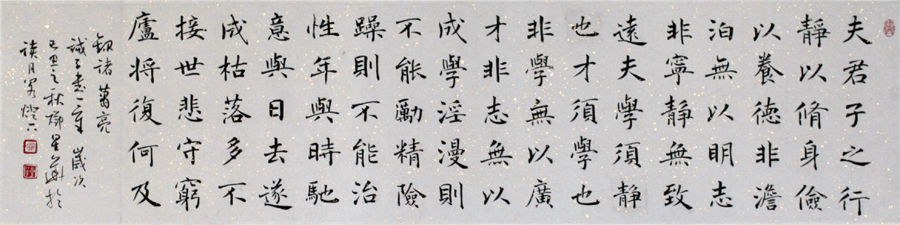 夫君子之行
靜以脩身儉
以養德非澹
泊無以明志
非寧靜無致
遠夫學須靜
也才須學也
非學無以廣
才非志無以
成學淫漫則
不能勵精險
躁則不能治
性年與時馳
意與日去遂
成枯落多不
接世悲守窮
廬将復何及
諸葛亮
誡子書一章 歲次
己丑之秋柳星華於
读月